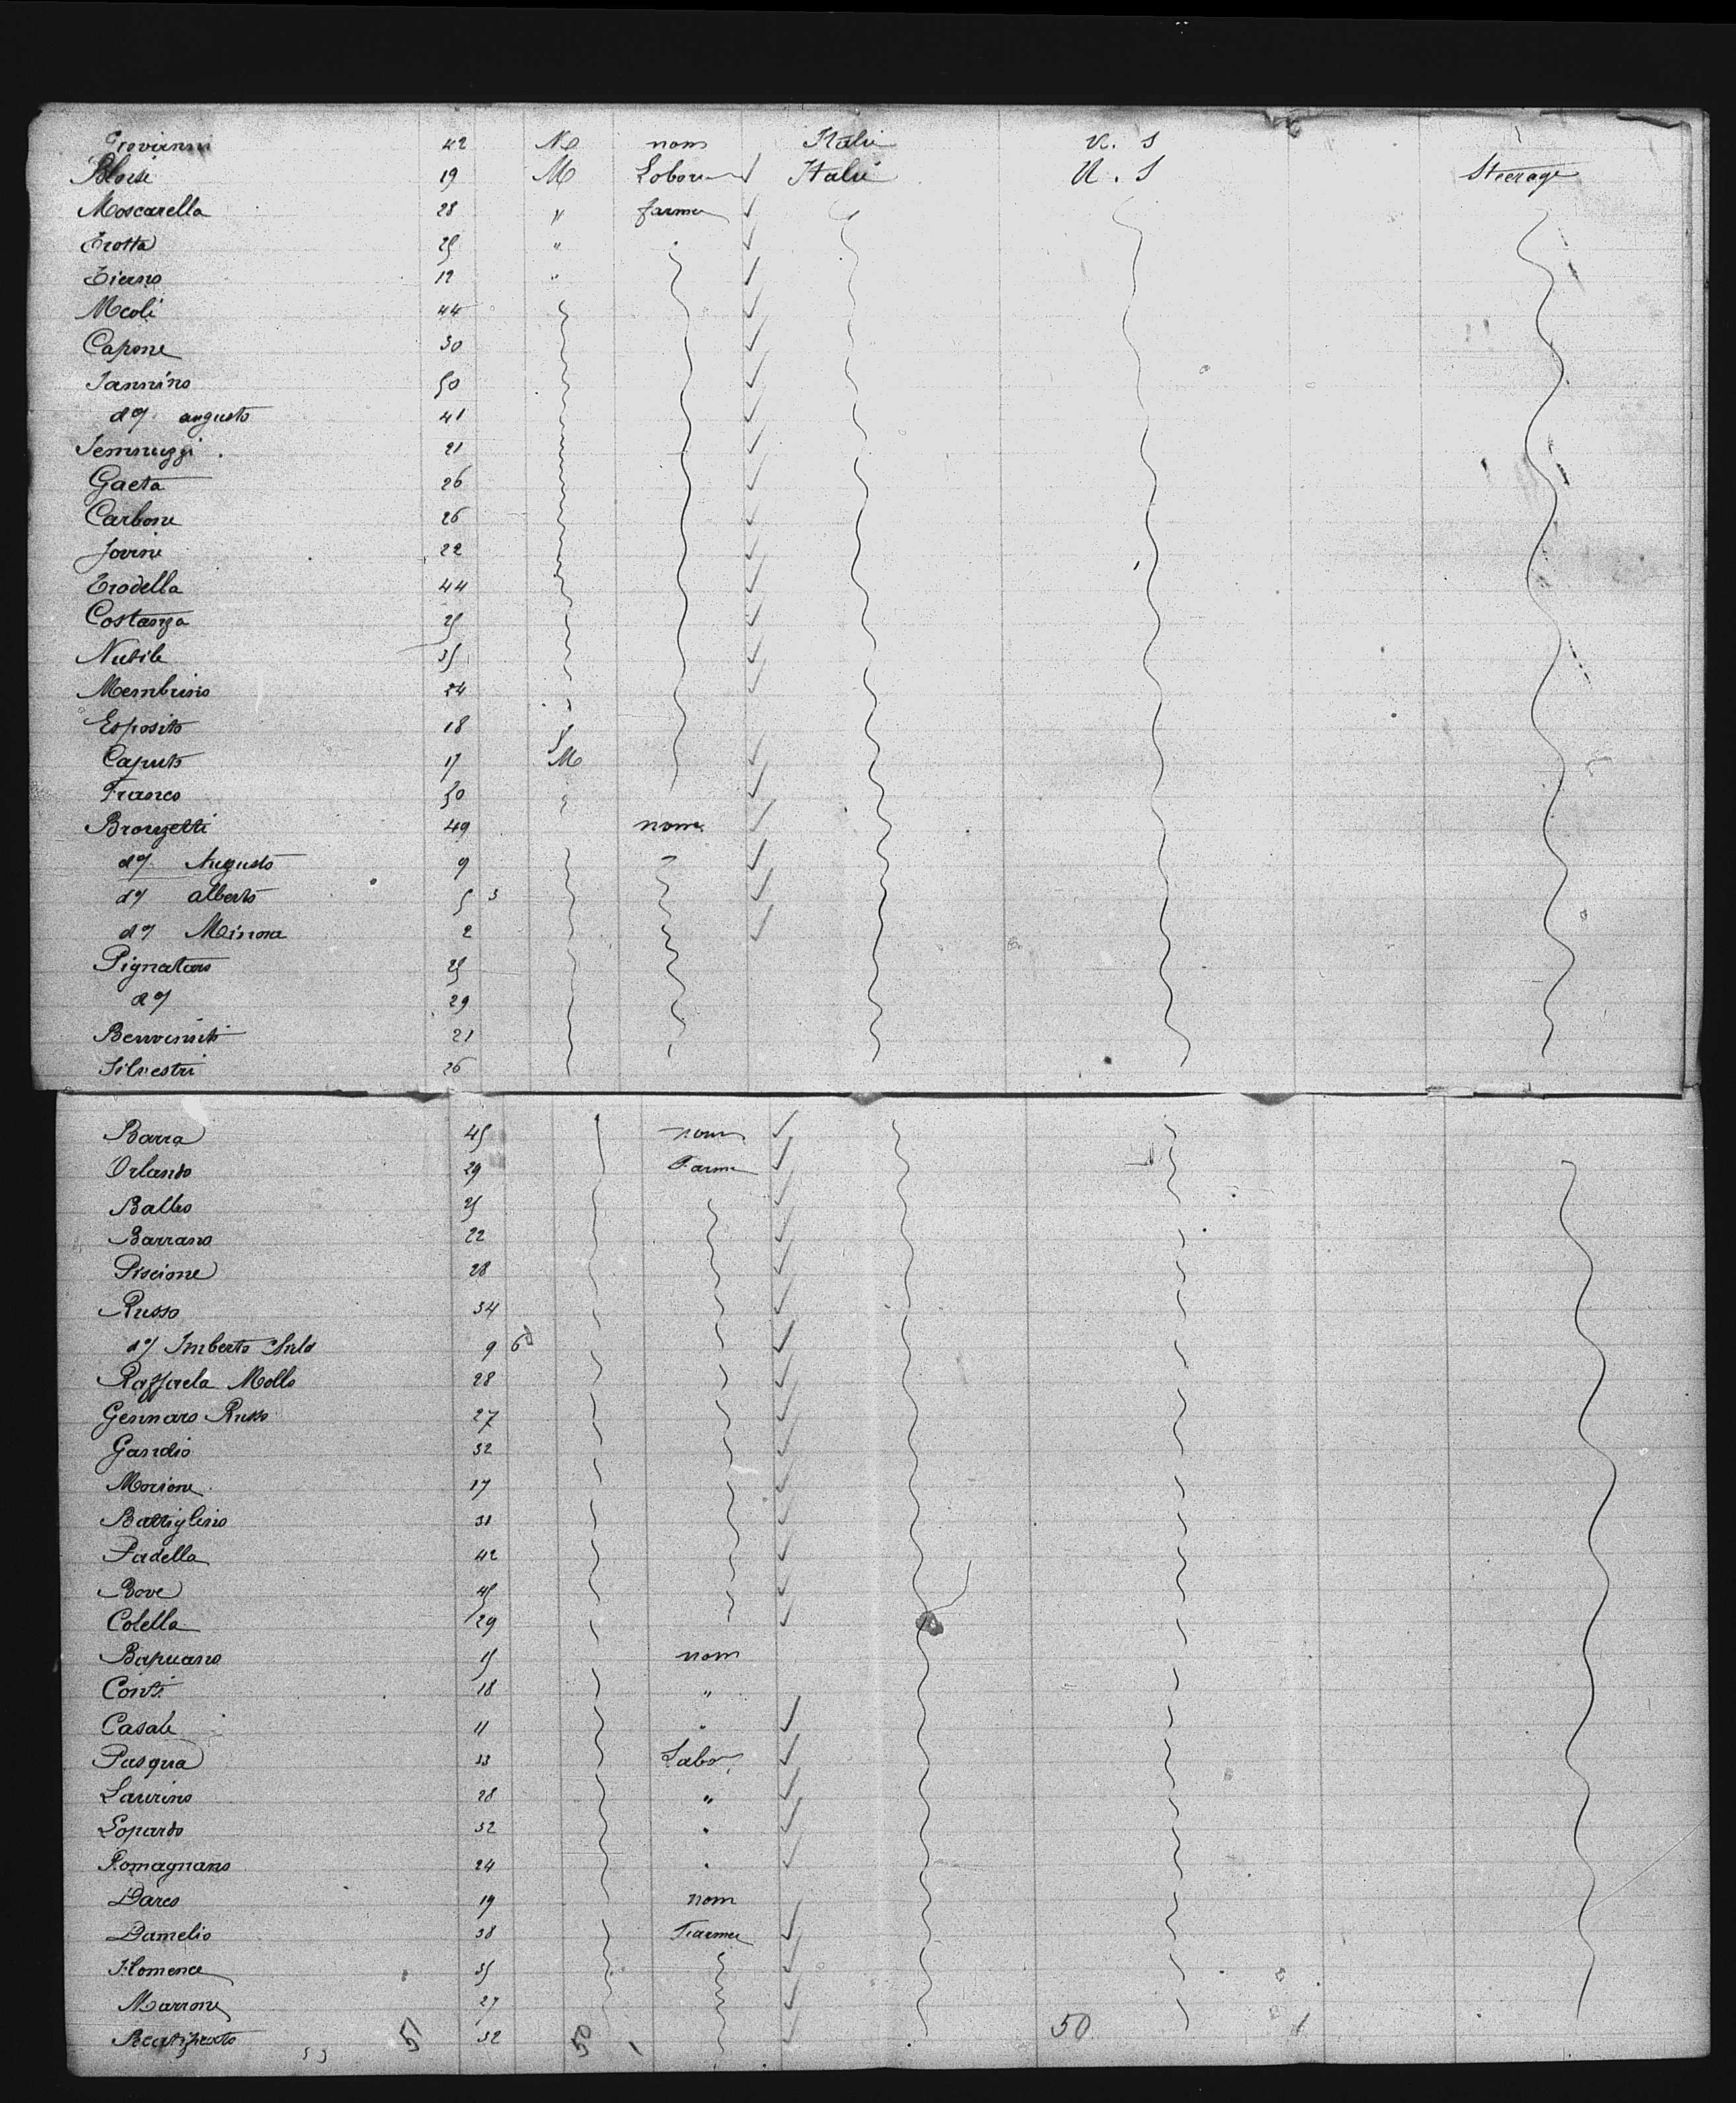 Giovanni 42 M nom Italie U. S
Bloise 19 M Labour Italie U. S Steerage
Moscarella 28 " farmer
Trotta 25 "
Tierno 12 "
Meoli 44
Capone 30
Iannino 50
do/ augusto 41
Iemnuzzi 21
Gaeta 26
Carbone 26
Jovine 22
Trodella 44
Costanza 25
Nutile 35
Membrino 24
Esposito 18
Caputo 17 M
Franco 30
Bronzetti 49 nom
do/ Augusto 9
do/ alberto 5 3
do/ Minora 2
Pignataro 25
do/ 29
Benvenuti 21
Silvestri 26
Barra 45 nom
Orlando 29 Farmer
Balbo 25
Barrano 22
Piscione 28
Russo 34
do/ Imberto 9 6
Raffaela Mollo 28
Gennaro Russo 27
Gandio 32
Morione 17
Battiglino 31
Padella 42
Bove 45
Colella 29
Bapuano 15 nom
Conti 18 "
Casale 11 "
Pasqua 33 Labor
Laurino 28 "
Lopardo 32 "
Romagnano 24 "
Dareo 19 nom
Damelio 38 Farmer
Filomena 35
Marrone 27
32 50 50